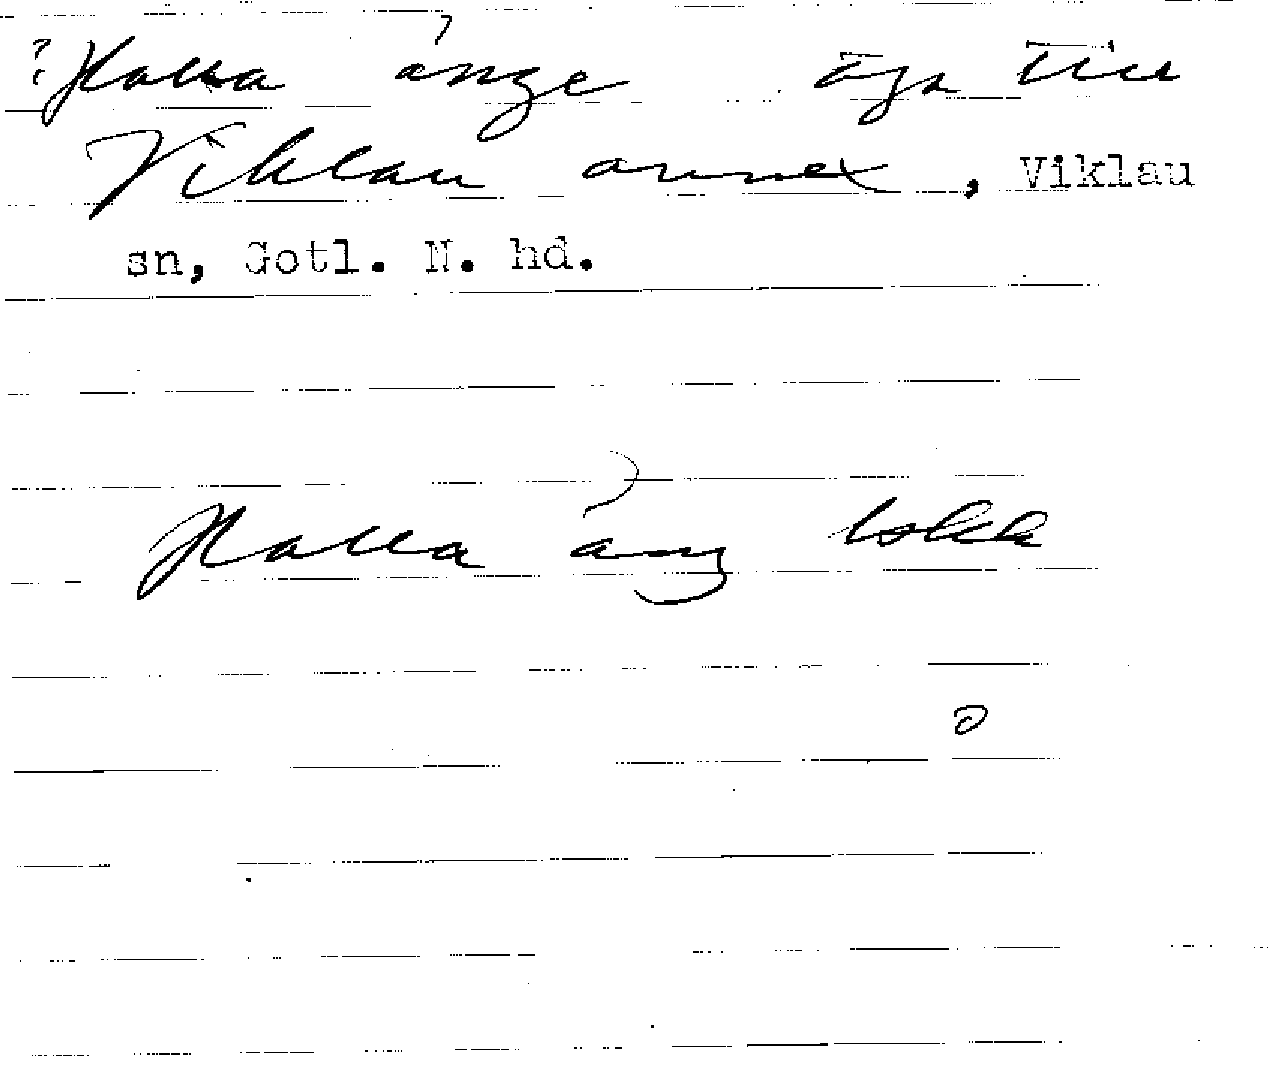 ? Halla änge äga till
Viklau annex, Viklau
sn, Gotl. N. hd.
Halla äng